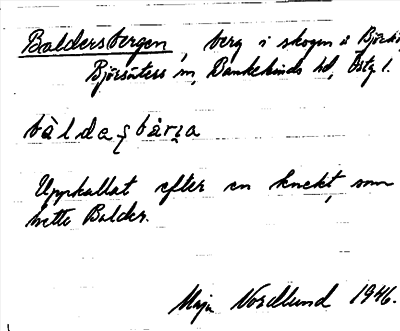 Baldersbergen, berg i skogen å
Björsäters sn, Bankekinds hd, Östg l.
bàldaʂbær̨a
Uppkallat efter en knekt, som
hette Balder.
Maja Nordlund 1946.